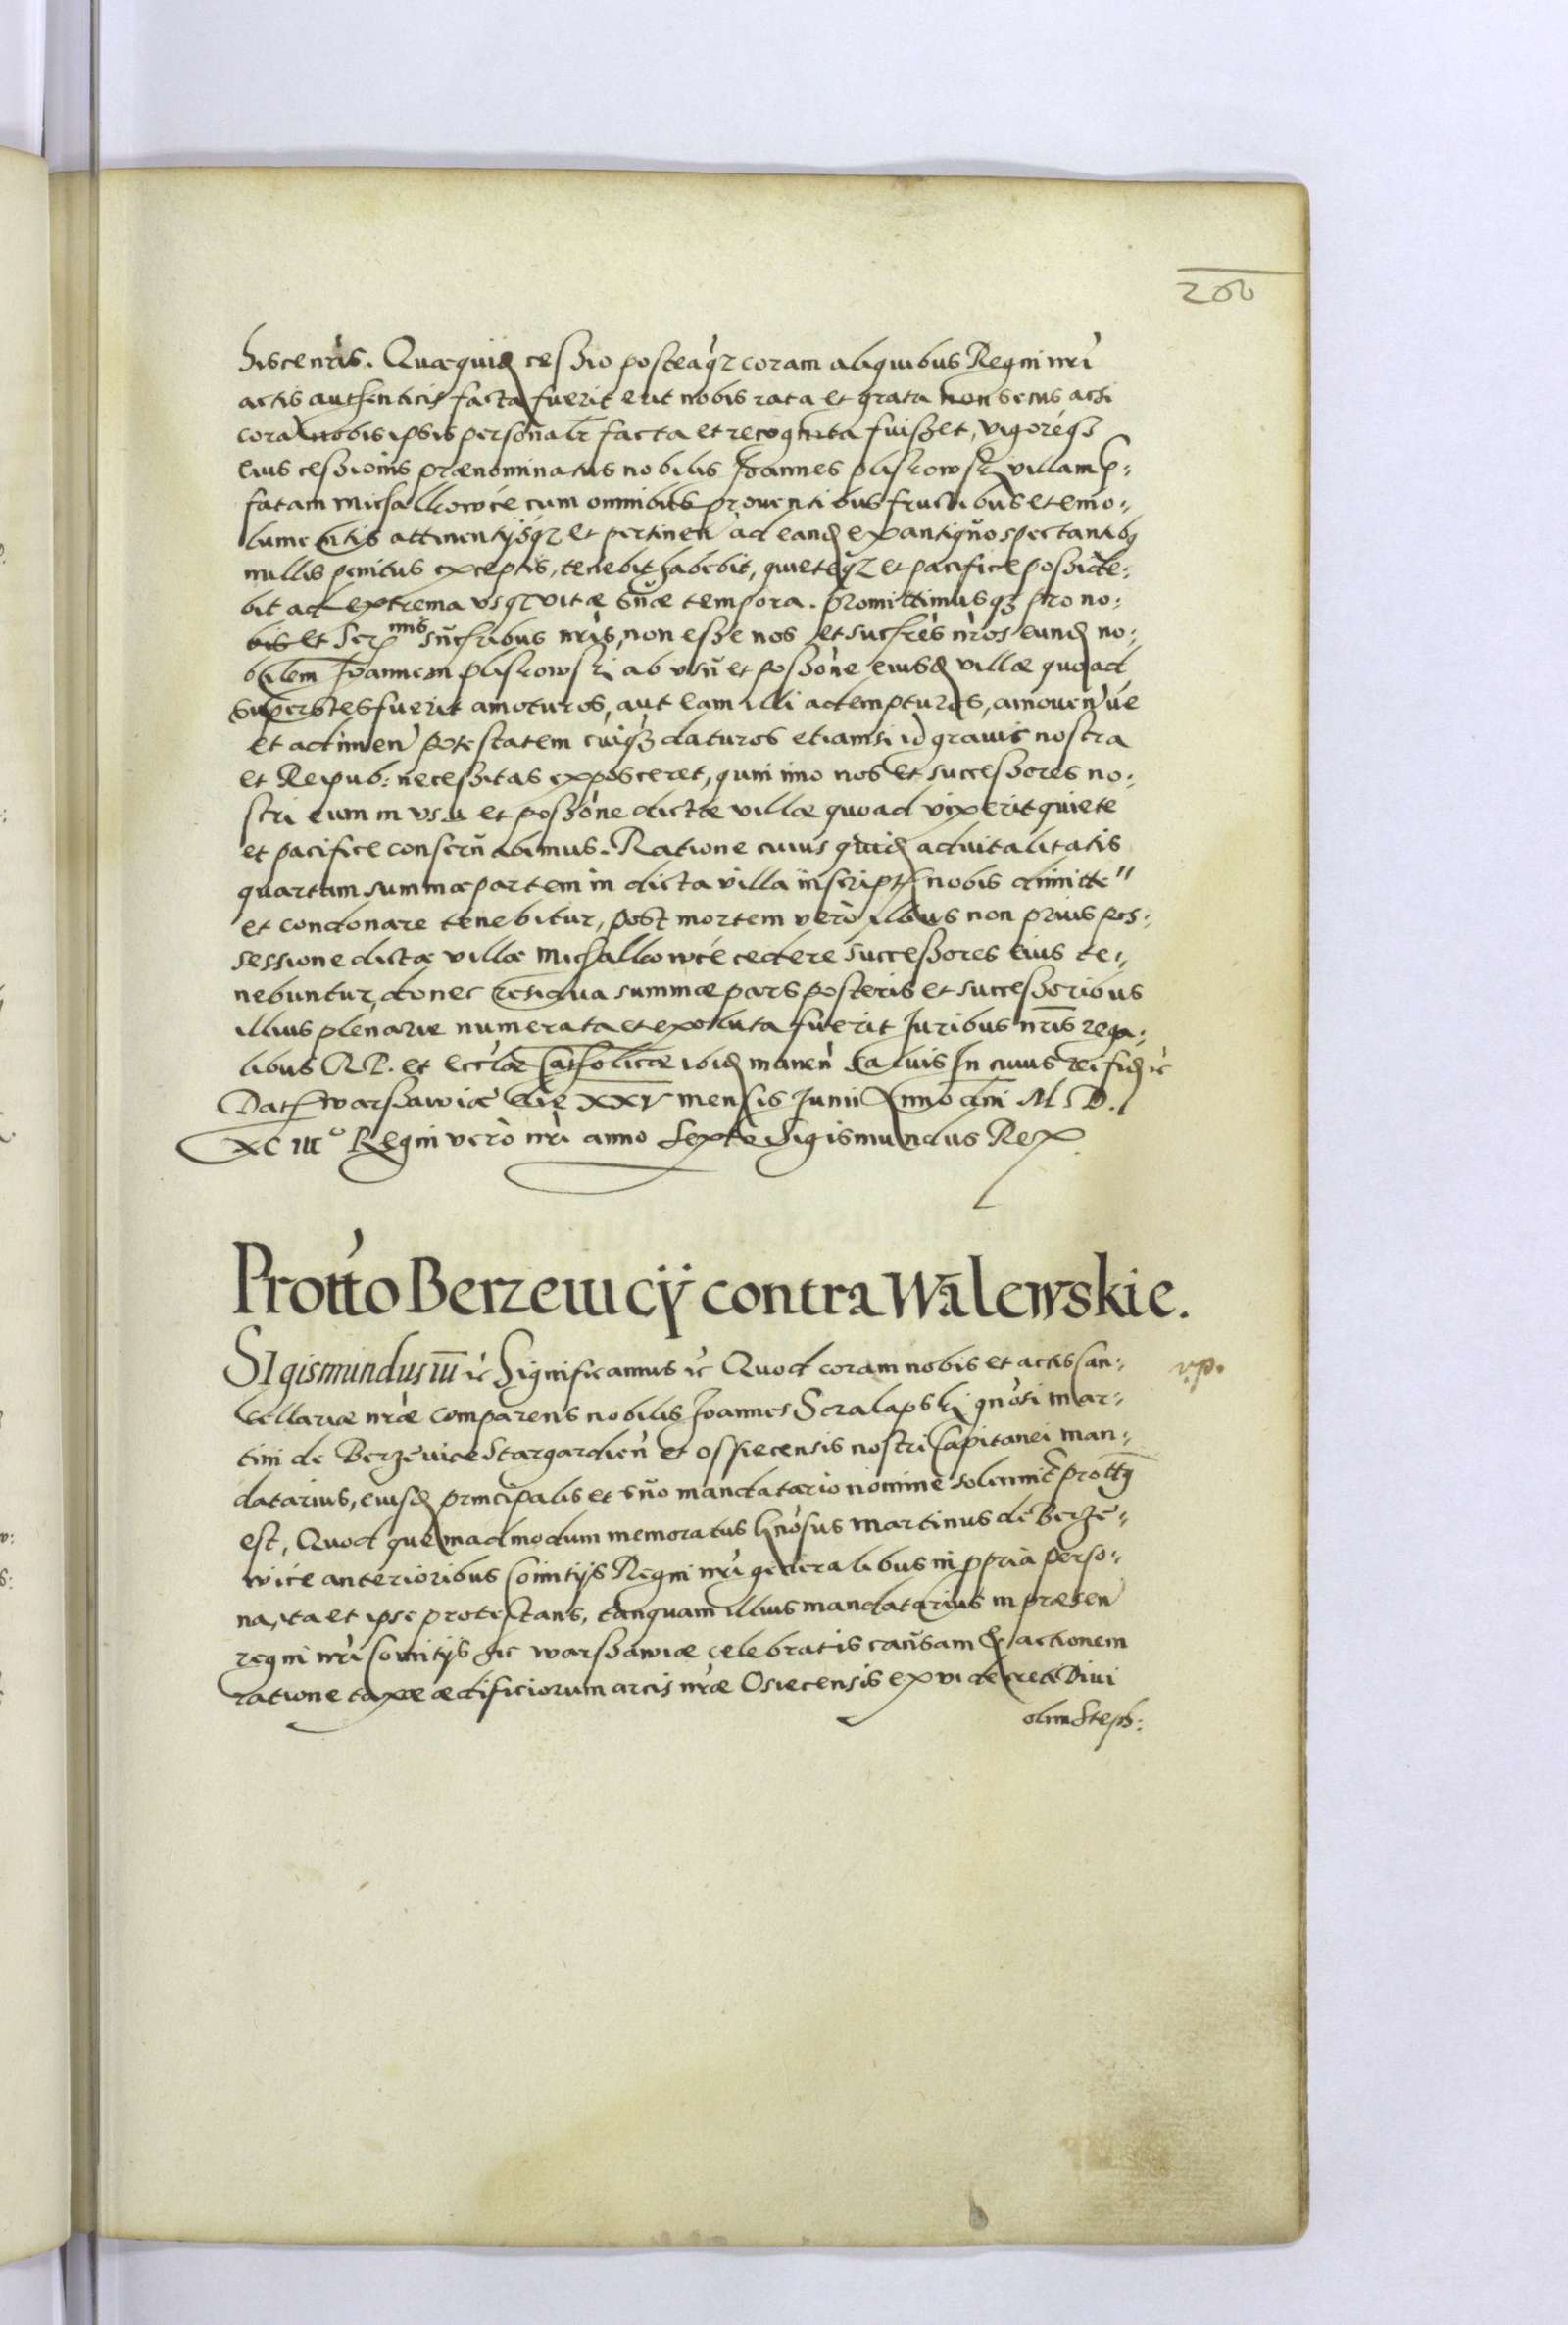 200
hisce nr̃is. Quæquid cessio posteaq̃ coram aliquibus Regni nr̃i
actis authenticis facta fuerit erit nobis rata et grata non secus acsi
corã nobis ipsis personalr̃ facta et recognita fuisset, vigoreq3
eius cessionis prænominatus nobilis Joannes pliskowski villam p̃:
fatam Michalkowice cum omnibus proventibus fructibus et emo:
lumentis attinentijsq3 et pertineñ ad eand̃ ex antiquo spectantib9
nullis penitus exceptis, tenebit habebit, quieteq3 et pacifice posside:
bit ad extrema usq3 vitæ suæ tempora. Promittimusq3 pro no:
bis et Ser̃mis sucr̃ibus nr̃is, non esse nos et sucr̃es nr̃os eund̃ no:
bilem Joannem pliskowski ab usu et possõne eiusd̃ villæ quoad
superstes fuerit amoturos, aut eam illi adempturos, amoveñve
et adimeñ potestatem cuiq3 daturos etiamsi id gravis nostra
et Reipub: necessitas exposceret, quin imo nos et successores no:
stri eum in usu et possõne dictæ villæ quoad vixerit quiete
et pacifice conservabimus. Ratione cuius quid̃ advitalitatis
quartam summæ partem in dicta villa inscript̃ nobis dimitte"
et condonare tenebitur, post mortem verò illius non prius pos:
sessione dictæ villæ Michalkowice cedere successores eius te:
nebuntur, donec reliqua summæ pars posteris et successoribus
illius plenarie numerata et exoluta fuerit Juribus nr̃is rega:
libus R.P. et eccl̃æ Catholicæ ibid̃ maneñ salvis In cuius rei fid̃ ic̃
Dat̃ Warshawiæ die XXV mensis Junii Anno dñi M. D.
XC III° Regni verò nr̃i anno Sexto Sigismundus Rex
Prott̃o Berzewicÿ contra Walewskie.
SIgismundus iii ic̃ Significamus ic̃ Quod coram nobis et actis Can:
cellariæ nr̃æ comparens nobilis Joannes Scralapski gñosi Mar:
tini de Berzewice Stargardieñ et Ossiecensis nostri Capitanei man:
datarius, eiusd̃ principalis et suo mandatario nomine solennit̃ prott̃9
est, Quod quemadmodum memoratus Gñosus Martinus de Berze:
wice anterioribus Comitijs Regni nr̃i generalibus in ꝓpria perso:
na, ita et ipse protestans, tanquam illius mandatarius in præseñ
regni nr̃i Comitijs hic Warshawiæ celebratis causam & actionem
ratione taxæ ædificiorum arcis nr̃æ Osiecensis ex vi decreti Divi
olim Steph: